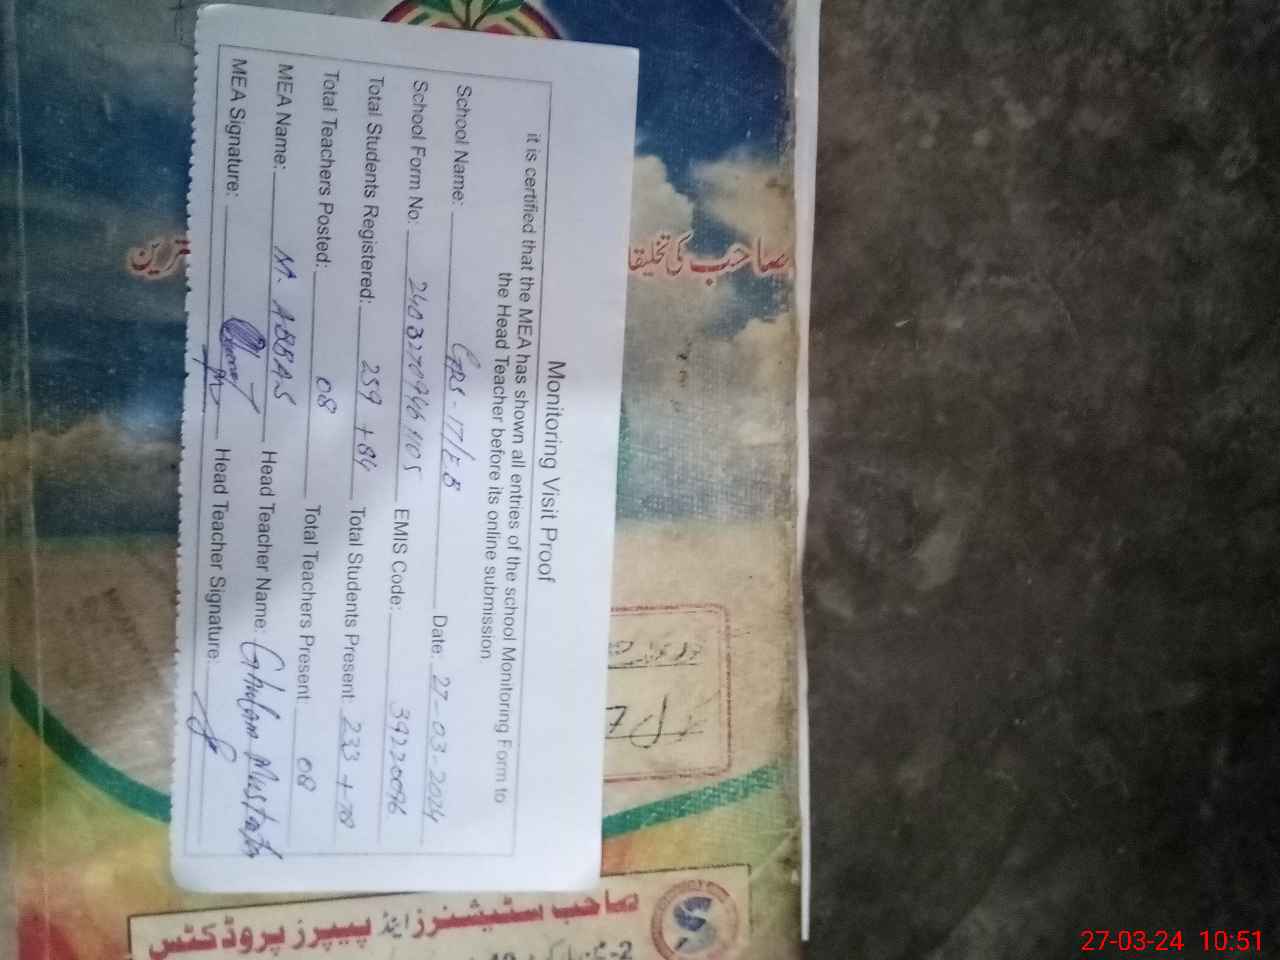 Monitoring Visit Proof
it is certified that the MEA has shown all entries of the school Monitoring Form to
the Head Teacher before its online submission
School Name: GPS-17/EB Date: 27-03-2024
School Form No: EMIS Code: 39220096
Total Students Registered: 259 +84 Total Students Present: 233 + 78
Total Teachers Posted: 08 Total Teachers Present: 08
MEA Name: M. ABBAS Head Teacher Name: Ghulam Mustafa
MEA Signature: Head Teacher Signature:
صاحب کی
صاحب سٹیشنرز اینڈ پیپرز پروڈکٹس
27-03-24 10:51